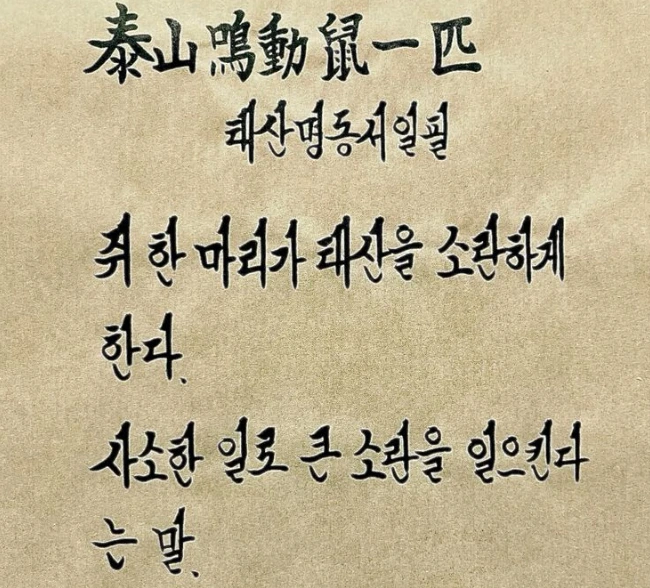 泰山鳴動鼠一匹
태산명동서일필
쥐 한 마리가 태산을 소란하게
한다.
사소한 일로 큰 소란을 일으킨다
는 말.